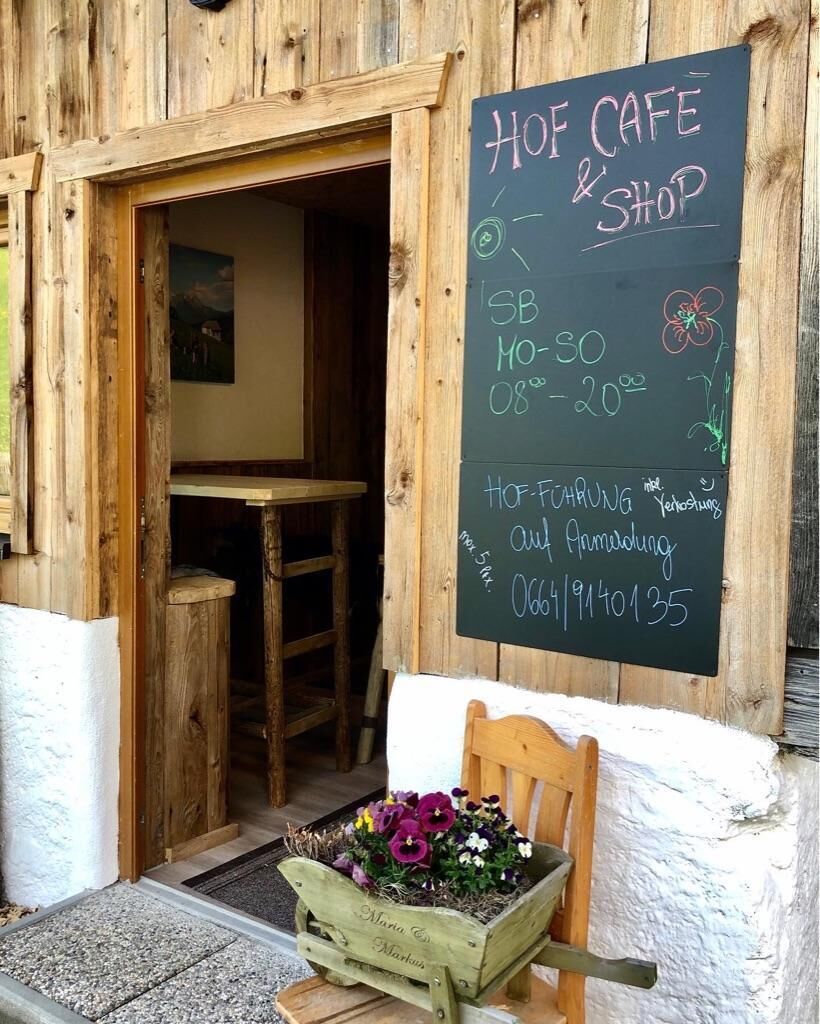 HOF CAFE
&
SHOP
SB
MO-SO
08⁰⁰ - 20⁰⁰
HOF-FÜHRUNG inkl. Verkostung
auf Anmeldung
max. 5 Px.
0664/9140135
Maria &
Markus